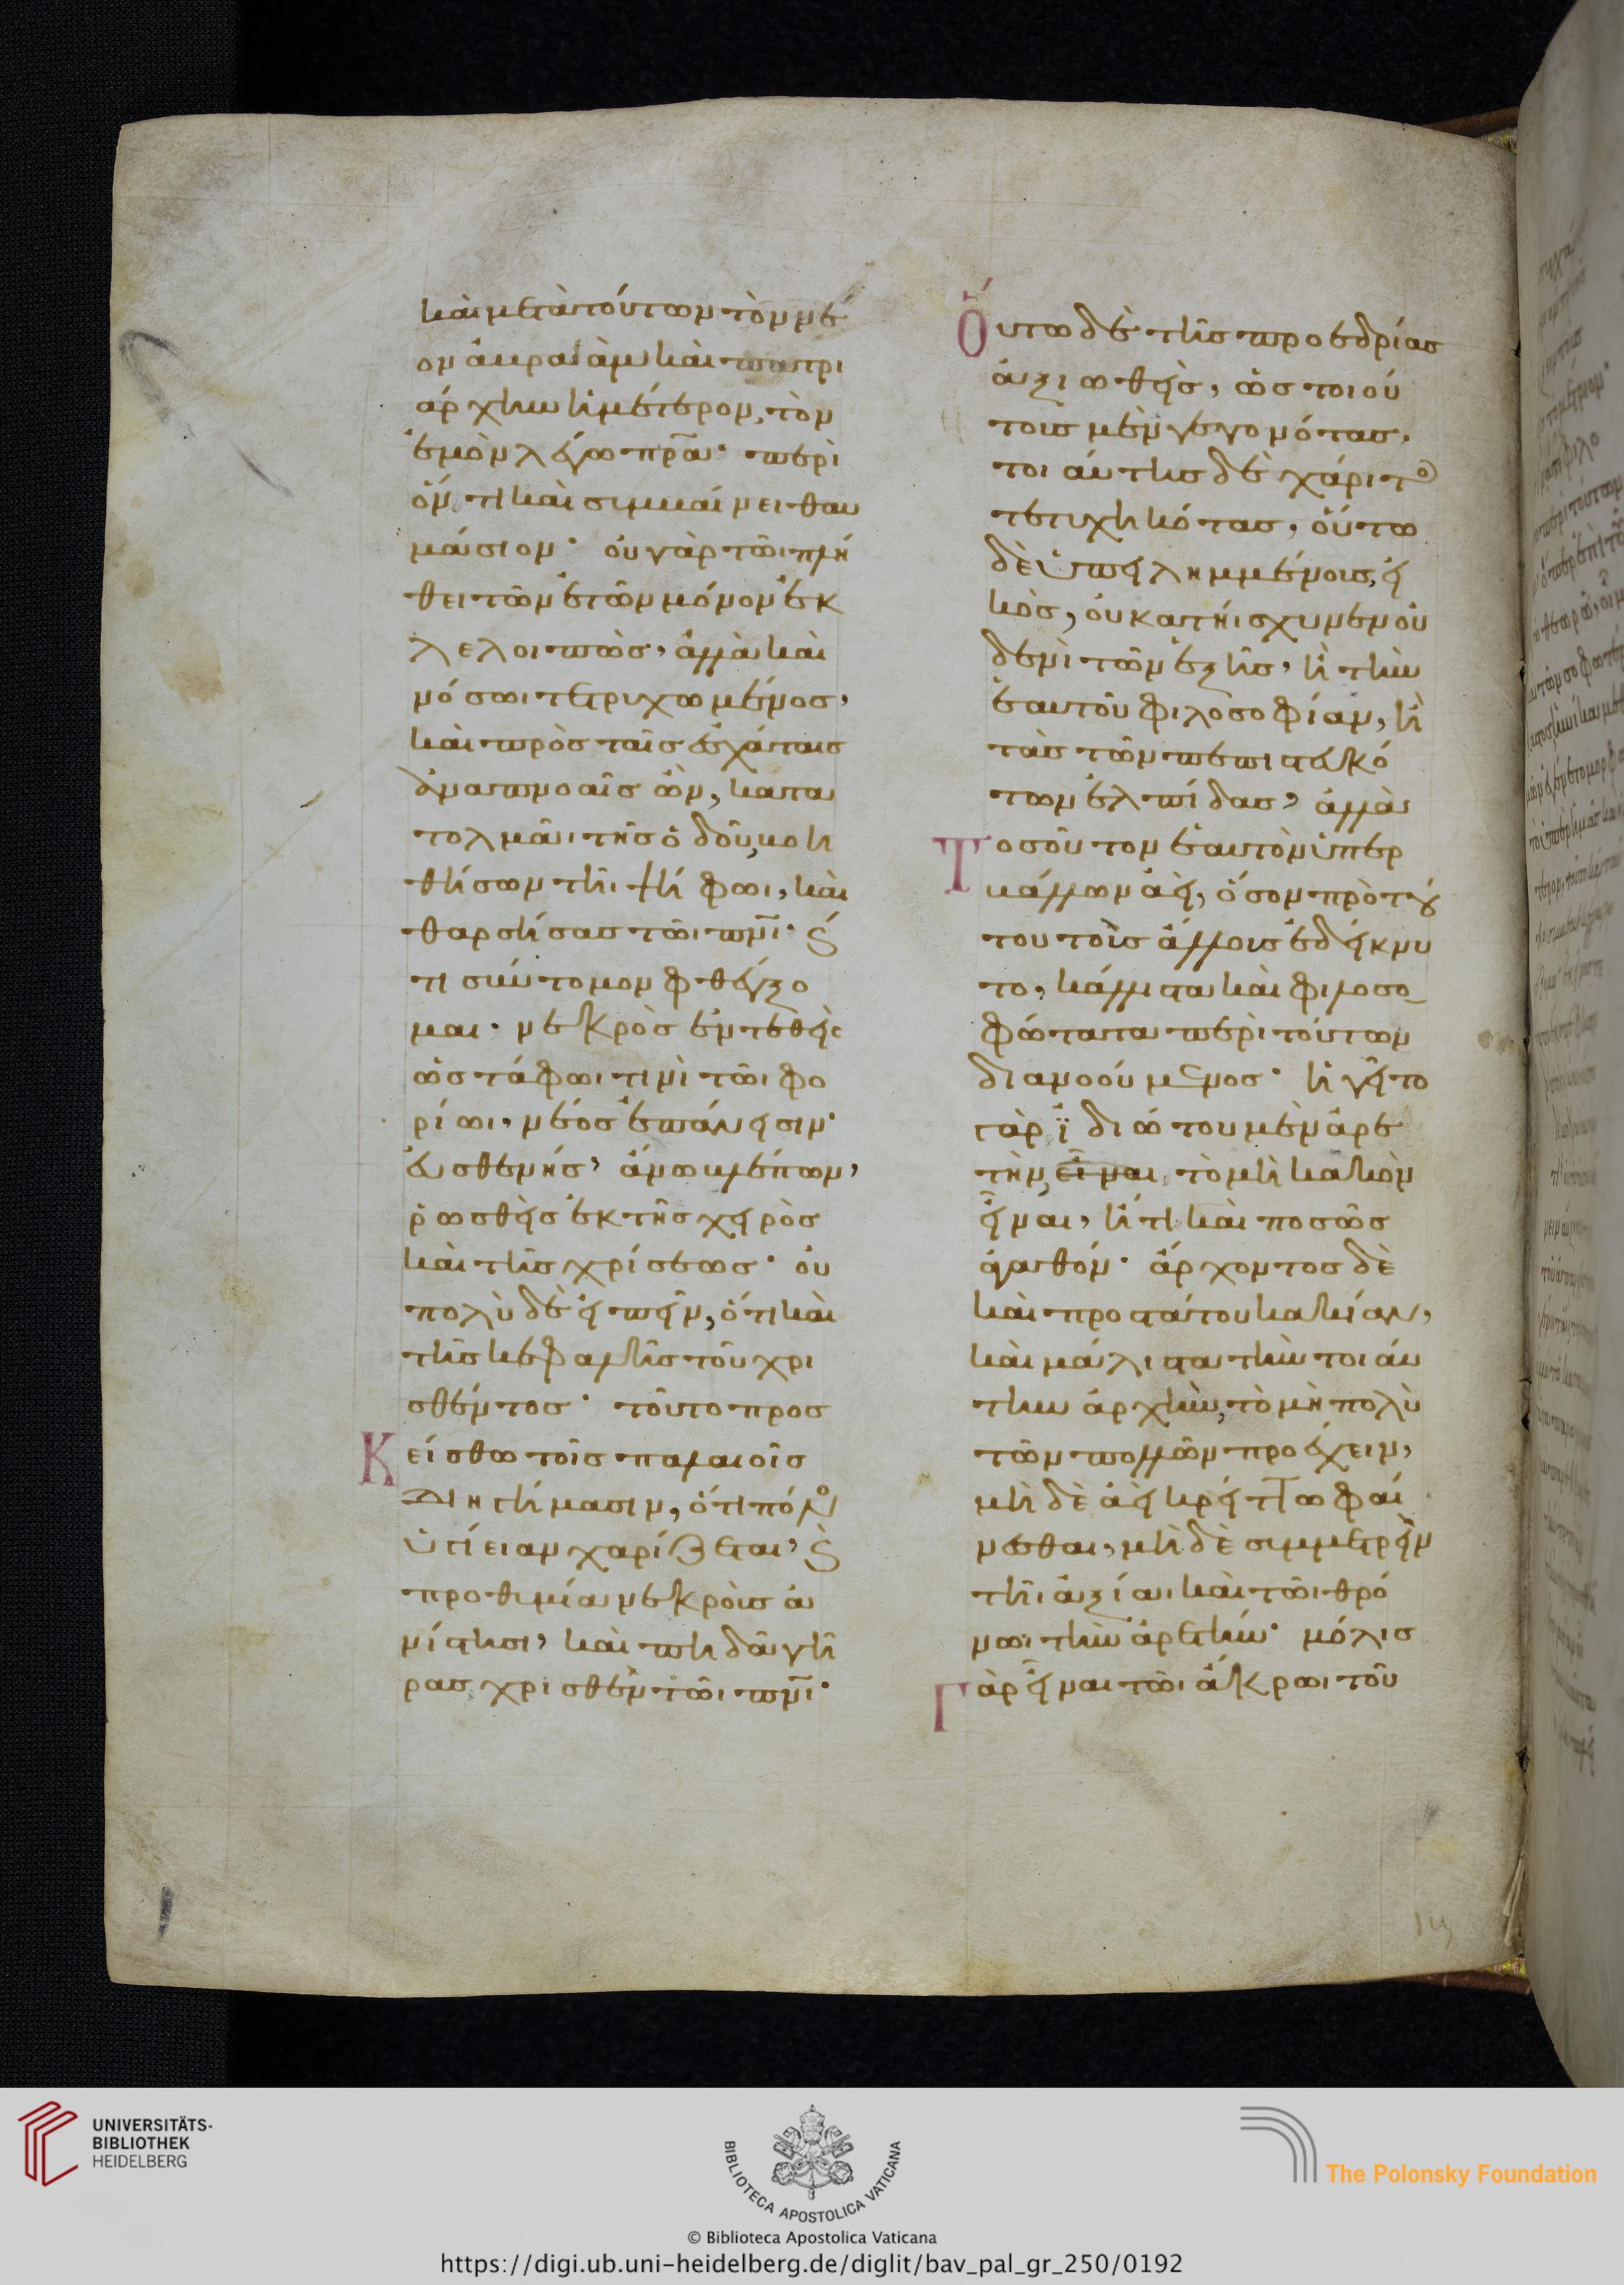 καὶ μετὰ τούτων τὸν νέ
ον ἀβραὰμ καὶ πατρι
άρχην ἡμέτερον, τὸν
ἐμὸν λέγω πρ̅α· περὶ
ὃν τι καὶ συμβαίνει θαυ
μάσιον· οὐ γὰρ τῶι πλή
θει τῶν ἐτῶν μόνον ἐκ
λελοιπὼς, ἀλλὰ καὶ
νόσωι τετρυχωμένος,
καὶ πρὸς ταῖς ἐσχάταις
ἀναπνοαῖς ὢν, κατα
τολμᾶι τῆς ὁδοῦ, βοη
θήσων τῆι ψήφωι, καὶ
θαρσήσας τῶι πν̅ι· ἵν
τι σύντομον φθέγξο
μαι· νεκρὸς ἐντεθεὶς
ὡς τάφωι τινὶ τῶι φο
ρίωι, νέος ἐπάνεισιν·
εὐσθενὴς, ἄνω βλέπων,
ῥωσθεὶς ἐκ τῆς χειρὸς
καὶ τῆς χρίσεως· οὐ
πολὺ δὲ εἰπεῖν, ὅτι καὶ
τῆς κεφαλῆς τοῦ χρι
σθέντος· τοῦτο προσ
κείσθω τοῖς παλαιοῖς
διηγήμασιν, ὅτι πόνος
ὑγίειαν χαρίζεται, καὶ
προθυμία νεκροὺς ἀ
νίστησι, καὶ πηδᾶ γῆ
ρας χρισθὲν τῶι πν̅ι·
Οὕτω δὲ τῆς προεδρίας
ἀξιωθεὶς, ὡς τοιού
τους μὲν γεγονότας,
τοιαύτης δὲ χάριτος
τετυχηκότας, οὕτω
δὲ ὑπειλημμένους, εἰ
κὸς, οὐ κατήισχυνεν οὐ
δενὶ τῶν ἑξῆς, ἢ τὴν
ἑαυτοῦ φιλοσοφίαν, ἢ
τὰς τῶν πεπιστευκό
των ἐλπίδας, ἀλλὰ
τοσοῦτον ἑαυτὸν ὑπερ
βάλλων ἀεὶ, ὅσον πρὸ τού
του τοὺς ἄλλους ἐδείκνυ
το, κάλλιστα καὶ φιλοσο
φώτατα περὶ τούτων
διανοούμενος· ἡγεῖτο
γὰρ ἰδιώτου μὲν ἀρε
τὴν εἶναι, τὸ μὴ κακὸν
εἶναι, ἤ τι καὶ ποσῶς
ἀγαθόν· ἄρχοντος δὲ
καὶ προστάτου κακίαν,
καὶ μάλιστα τὴν τοιαύ
την ἀρχὴν, τὸ μὴ πολὺ
τῶν πολλῶν προέχειν,
μηδὲ ἀεὶ κρείττω φαί
νεσθαι, μηδὲ συμμετρεῖν
τῆι ἀξίαι καὶ τῶι θρό
νωι τὴν ἀρετήν· μόλις
γὰρ εἶναι τῶι ἄκρωι τοῦ
UNIVERSITÄTS-
BIBLIOTHEK
HEIDELBERG
BIBLIOTECA APOSTOLICA VATICANA
© Biblioteca Apostolica Vaticana
The Polonsky Foundation
https://digi.ub.uni-heidelberg.de/diglit/bav_pal_gr_250/0192